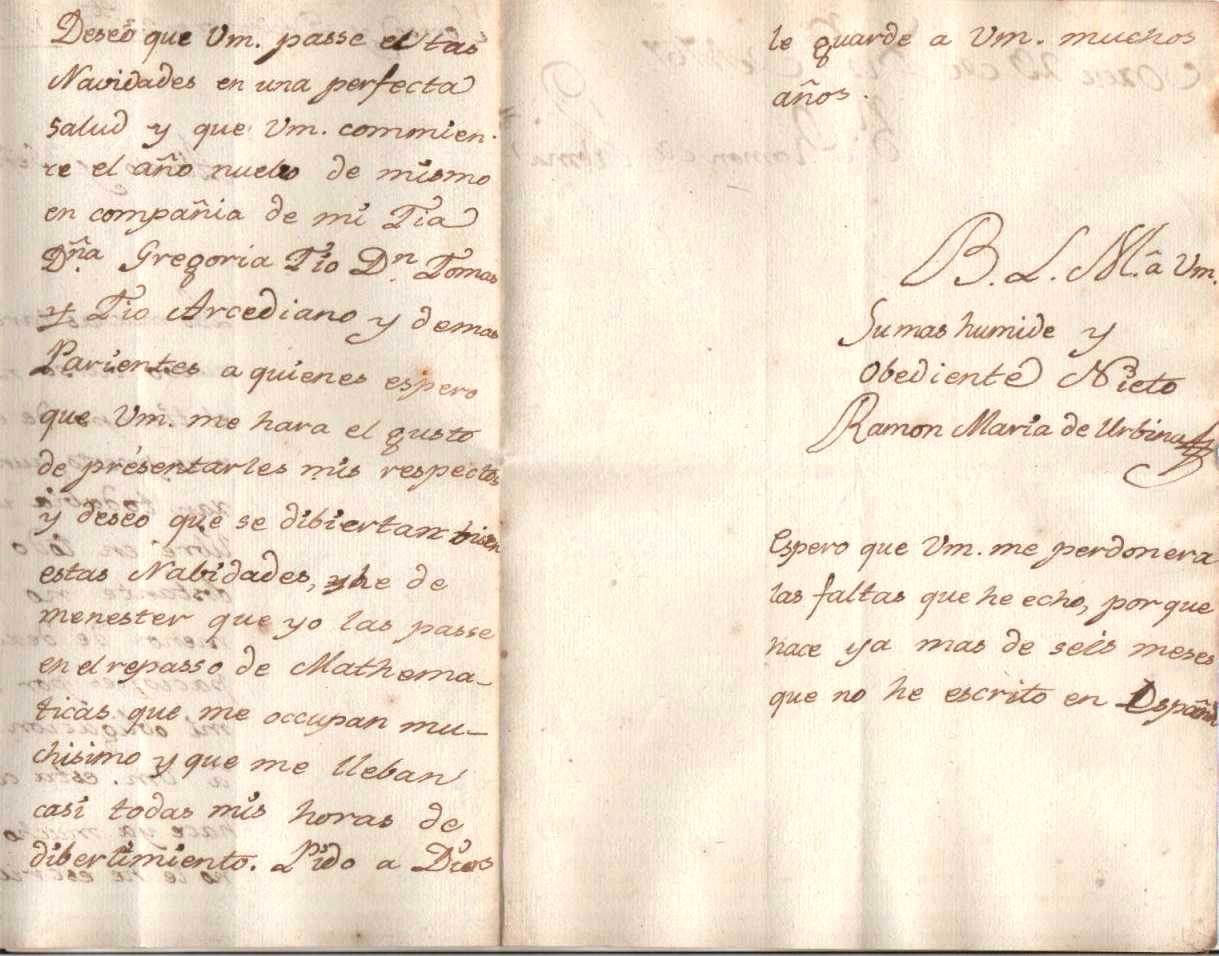 Deseo que Vm. passe estas
Navidades en una perfecta
salud y que Vm. commien-
ce el año nuebo de mismo
en compañia de mi Tia
Dña. Gregoria Tio Dn. Tomas
y Tio Arcediano y demas
Parientes a quienes espero
que Vm. me hara el gusto
de presentarles mis respectos
y deseo que se dibiertan bien
estas Nabidades, y he de
menester que yo las passe
en el repasso de Mathema-
ticas que me occupan mu-
chisimo y que me lleban
casi todas mis horas de
dibertimiento. Pido a Dios
le guarde a Vm. muchos
años.
B. L. M. â Vm.
Su mas humide y
Obediente Nieto
Ramon Maria de Urbina
Espero que Vm. me perdonera
las faltas que he echo, porque
hace ya mas de seis meses
que no he escrito en Español